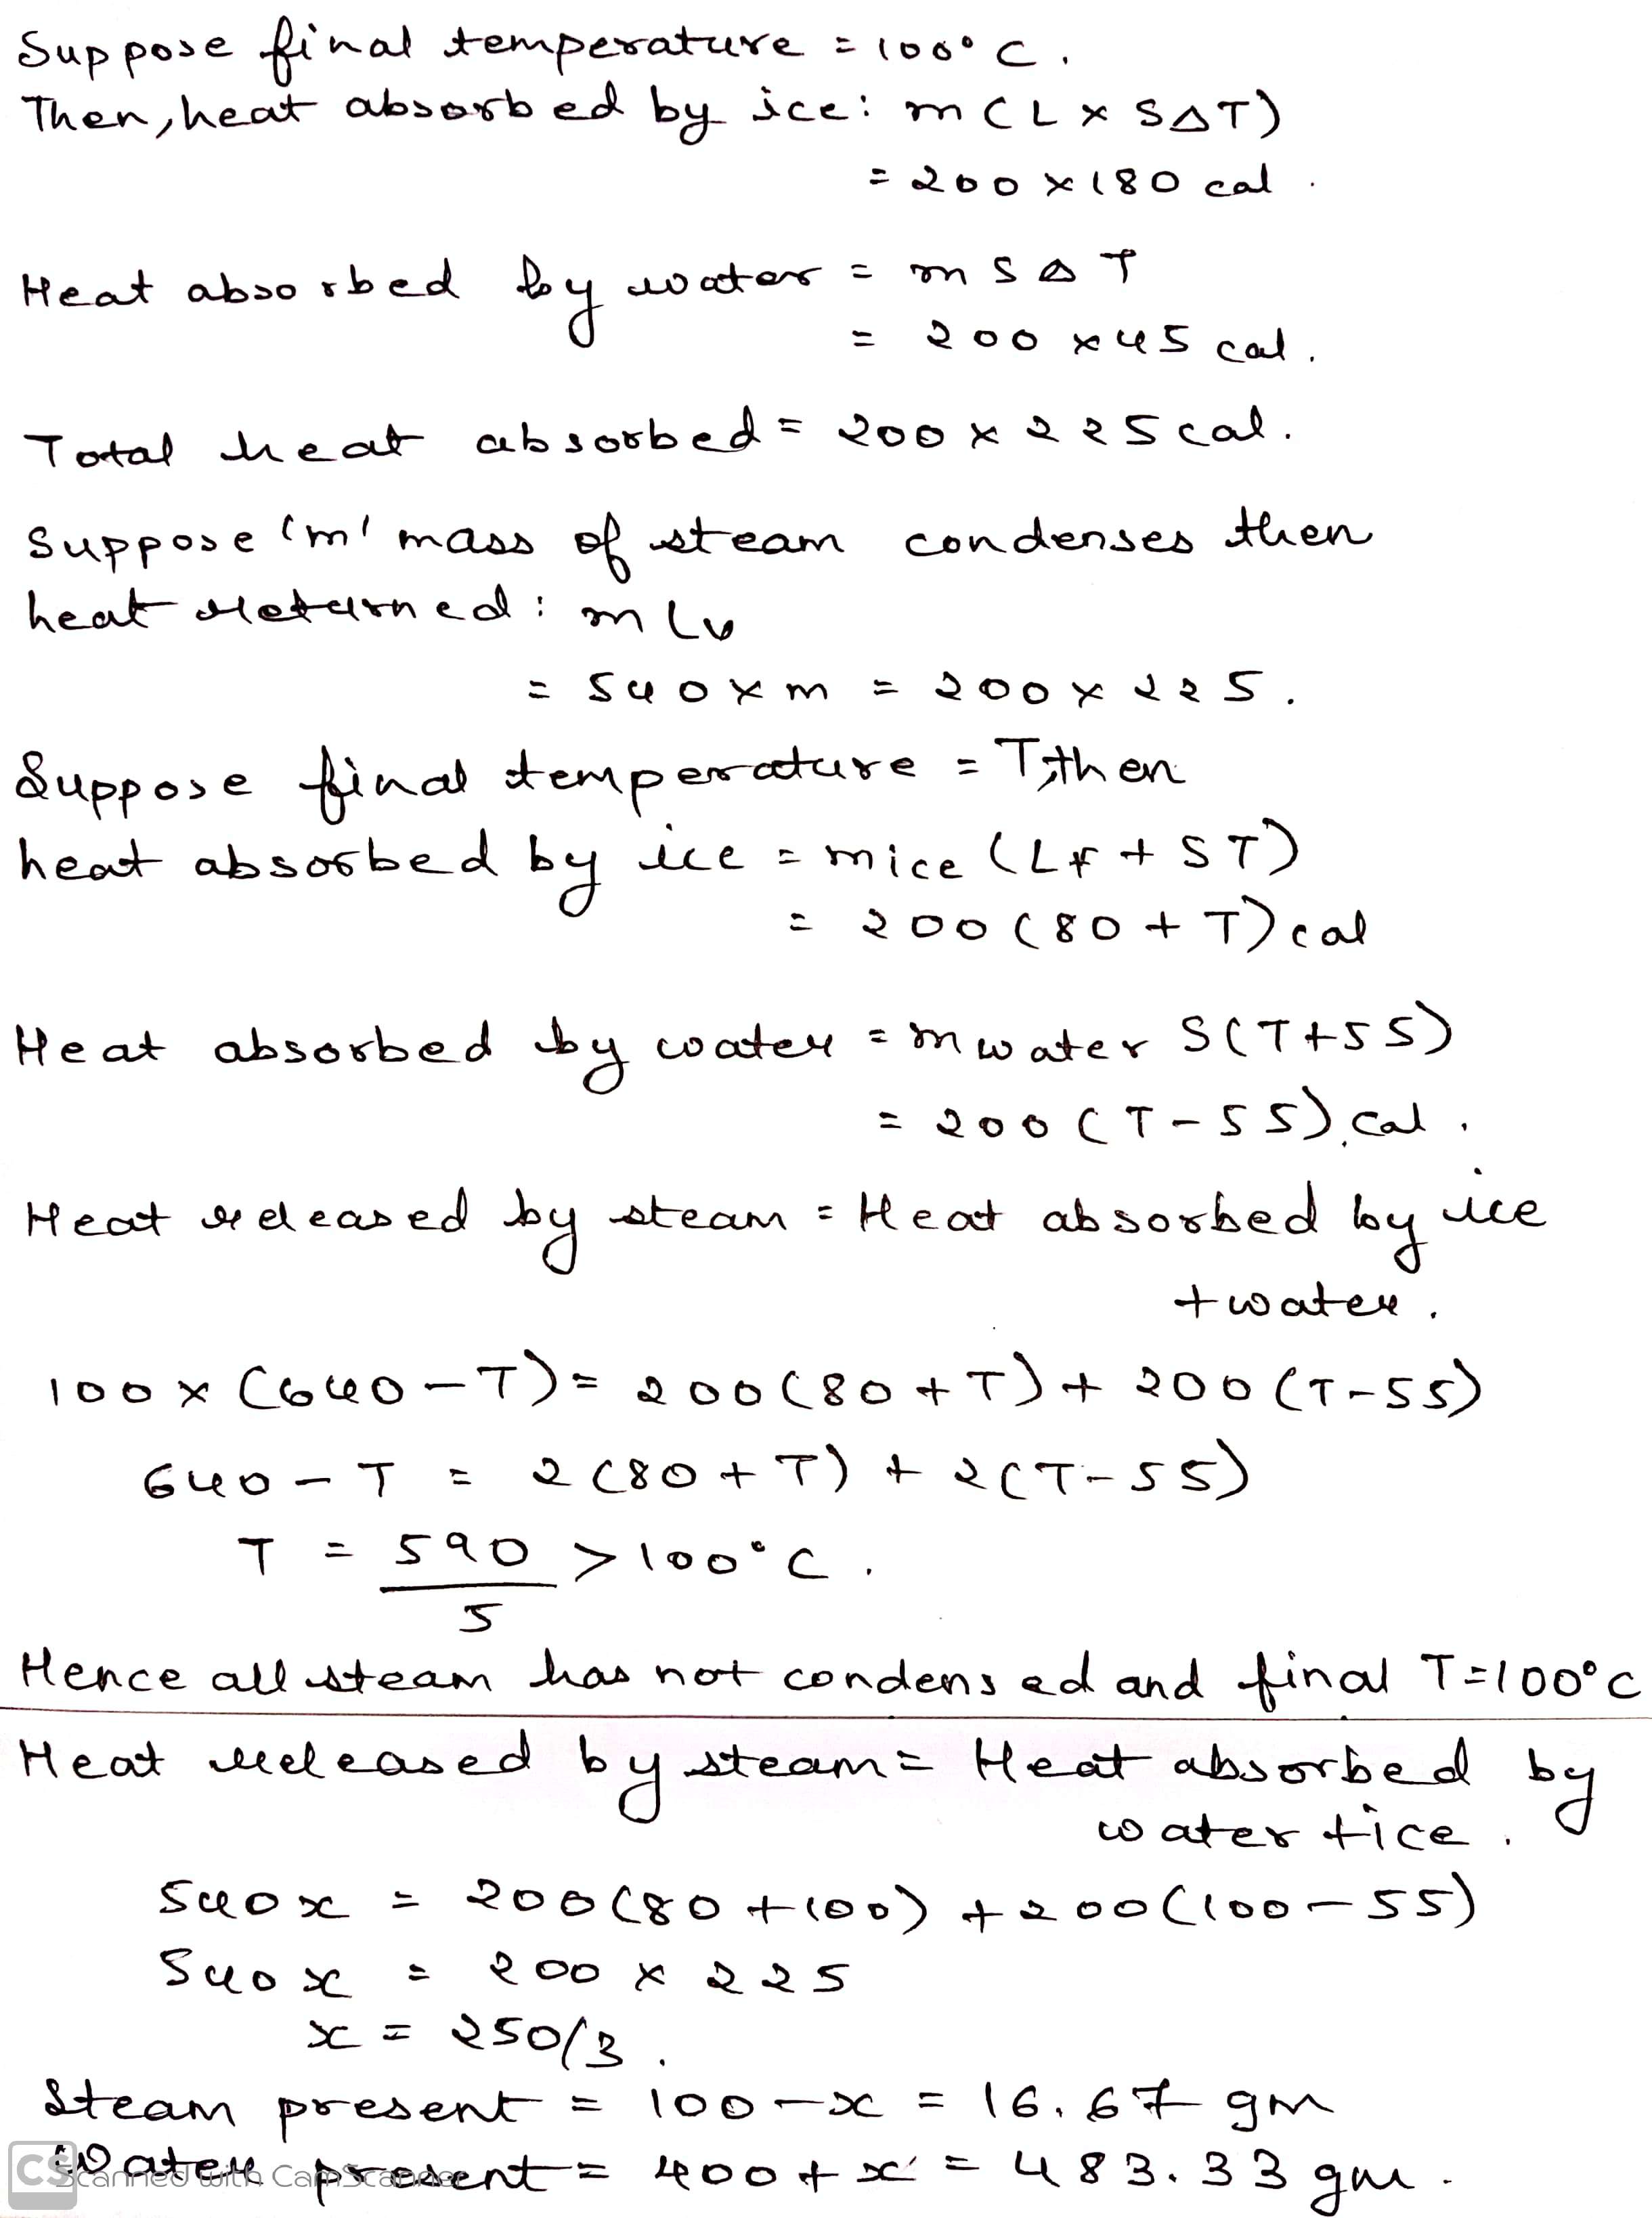 Suppose final temperature = 100°C.
Then, heat absorbed by ice: m(L x S∆T)
= 200 x 180 cal.
Heat absorbed by water = m S ∆ T
= 200 x 45 cal.
Total heat absorbed = 200 x 225 cal.
Suppose 'm' mass of steam condenses then
heat returned: m Lv
= 540 x m = 200 x 225.
Suppose final temperature = T, then
heat absorbed by ice = mice (Lf + ST)
= 200 (80 + T) cal
Heat absorbed by water = mwater S(T+55)
= 200 (T-55) cal.
Heat released by steam = Heat absorbed by ice
+ water.
100 x (640 - T) = 200 (80 + T) + 200 (T-55)
640 - T = 2(80 + T) + 2(T-55)
T = 590/5 > 100°C.
Hence all steam has not condensed and final T=100°C
Heat released by steam = Heat absorbed by
water + ice.
540x = 200 (80 + 100) + 200 (100-55)
540x = 200 x 225
x = 250/3.
Steam present = 100 - x = 16.67 gm
Water present = 400 + x = 483.33 gm.
CS Scanned with CamScanner